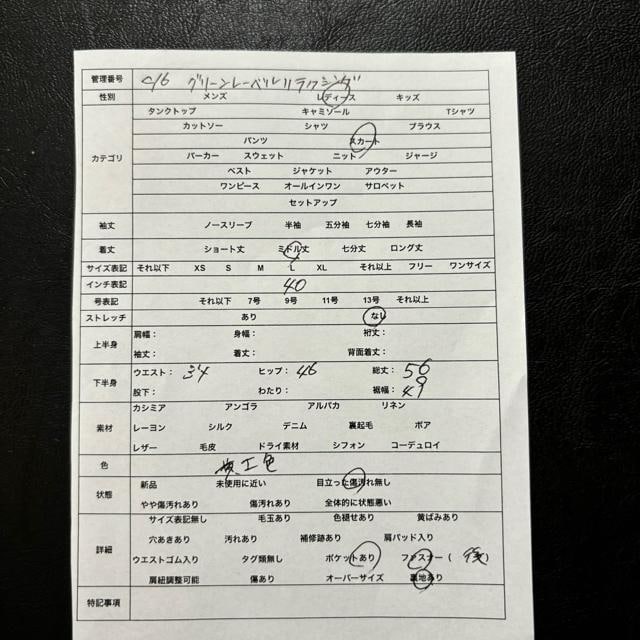 管理番号 c/6 グリーンレーベルリラクシング
性別 メンズ レディース キッズ
タンクトップ キャミソール Tシャツ
カットソー シャツ ブラウス
パンツ スカート
カテゴリ パーカー スウェット ニット ジャージ
ベスト ジャケット アウター
ワンピース オールインワン サロペット
セットアップ
袖丈 ノースリーブ 半袖 五分袖 七分袖 長袖
着丈 ショート丈 ミドル丈 七分丈 ロング丈
サイズ表記 それ以下 XS S M L XL それ以上 フリー ワンサイズ
インチ表記 40
号表記 それ以下 7号 9号 11号 13号 それ以上
ストレッチ あり なし
上半身 肩幅: 身幅: 裄丈:
袖丈: 着丈: 背面着丈:
下半身 ウエスト: 34 ヒップ: 46 総丈: 56
股下: わたり: 裾幅: 49
カシミア アンゴラ アルパカ リネン
素材 レーヨン シルク デニム 裏起毛 ボア
レザー 毛皮 ドライ素材 シフォン コーデュロイ
色 色
状態 新品 未使用に近い 目立った傷汚れ無し
やや傷汚れあり 傷汚れあり 全体的に状態悪い
サイズ表記無し 毛玉あり 色褪せあり 黄ばみあり
詳細 穴あきあり 汚れあり 補修跡あり 肩パッド入り
ウエストゴム入り タグ類無し ポケットあり ファスナー( 後)
肩紐調整可能 傷あり オーバーサイズ 裏地あり
特記事項